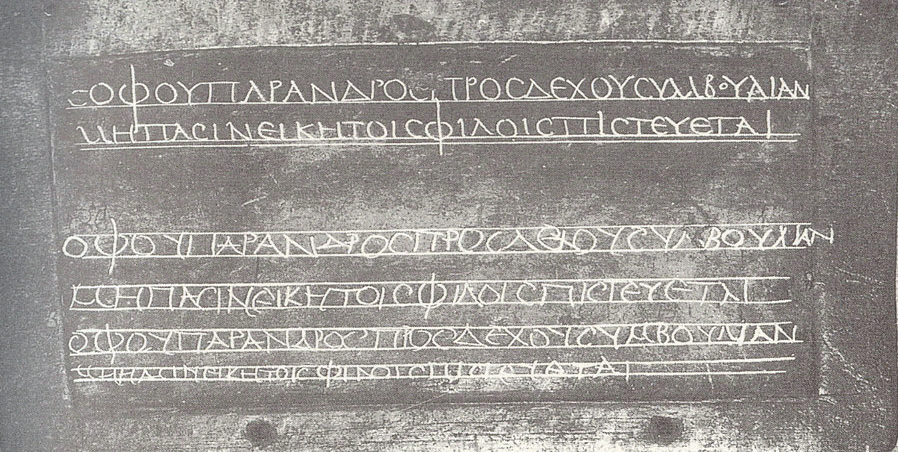 ϹΟΦΟΥΠΑΡΑΝΔΡΟϹΠΡΟϹΔΕΧΟΥϹΥΜΒΟΥΛΙΑΝ
ΜΗΠΑϹΙΝΕΙΚΗΤΟΙϹΦΙΛΟΙϹΠΙϹΤΕΥΕΤΑΙ
ΟΦΟΥΠΑΡΑΝΔΡΟϹΠΡΟϹΔΕΧΟΥϹΥΜΒΟΥΛΙΑΝ
ΜΗΠΑϹΙΝΕΙΚΗΤΟΙϹΦΙΛΟΙϹΠΙϹΤΕΥΕΤΑΙ
ΟΦΟΥΠΑΡΑΝΔΡΟϹΠΡΟϹΔΕΧΟΥϹΥΜΒΟΥΛΙΑΝ
ΕΙΚΗΤΟΙϹΦΙΛΟΙϹ